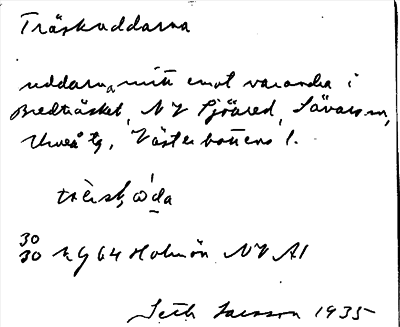 Träskuddarna
uddarna mitt emot varandra i
Bredträsket, NV Sjöåred, Sävars sn,
Umeå tg, Västerbottens l.
30
30 kg 64 Holmön NV A1
Seth Larsson 1935